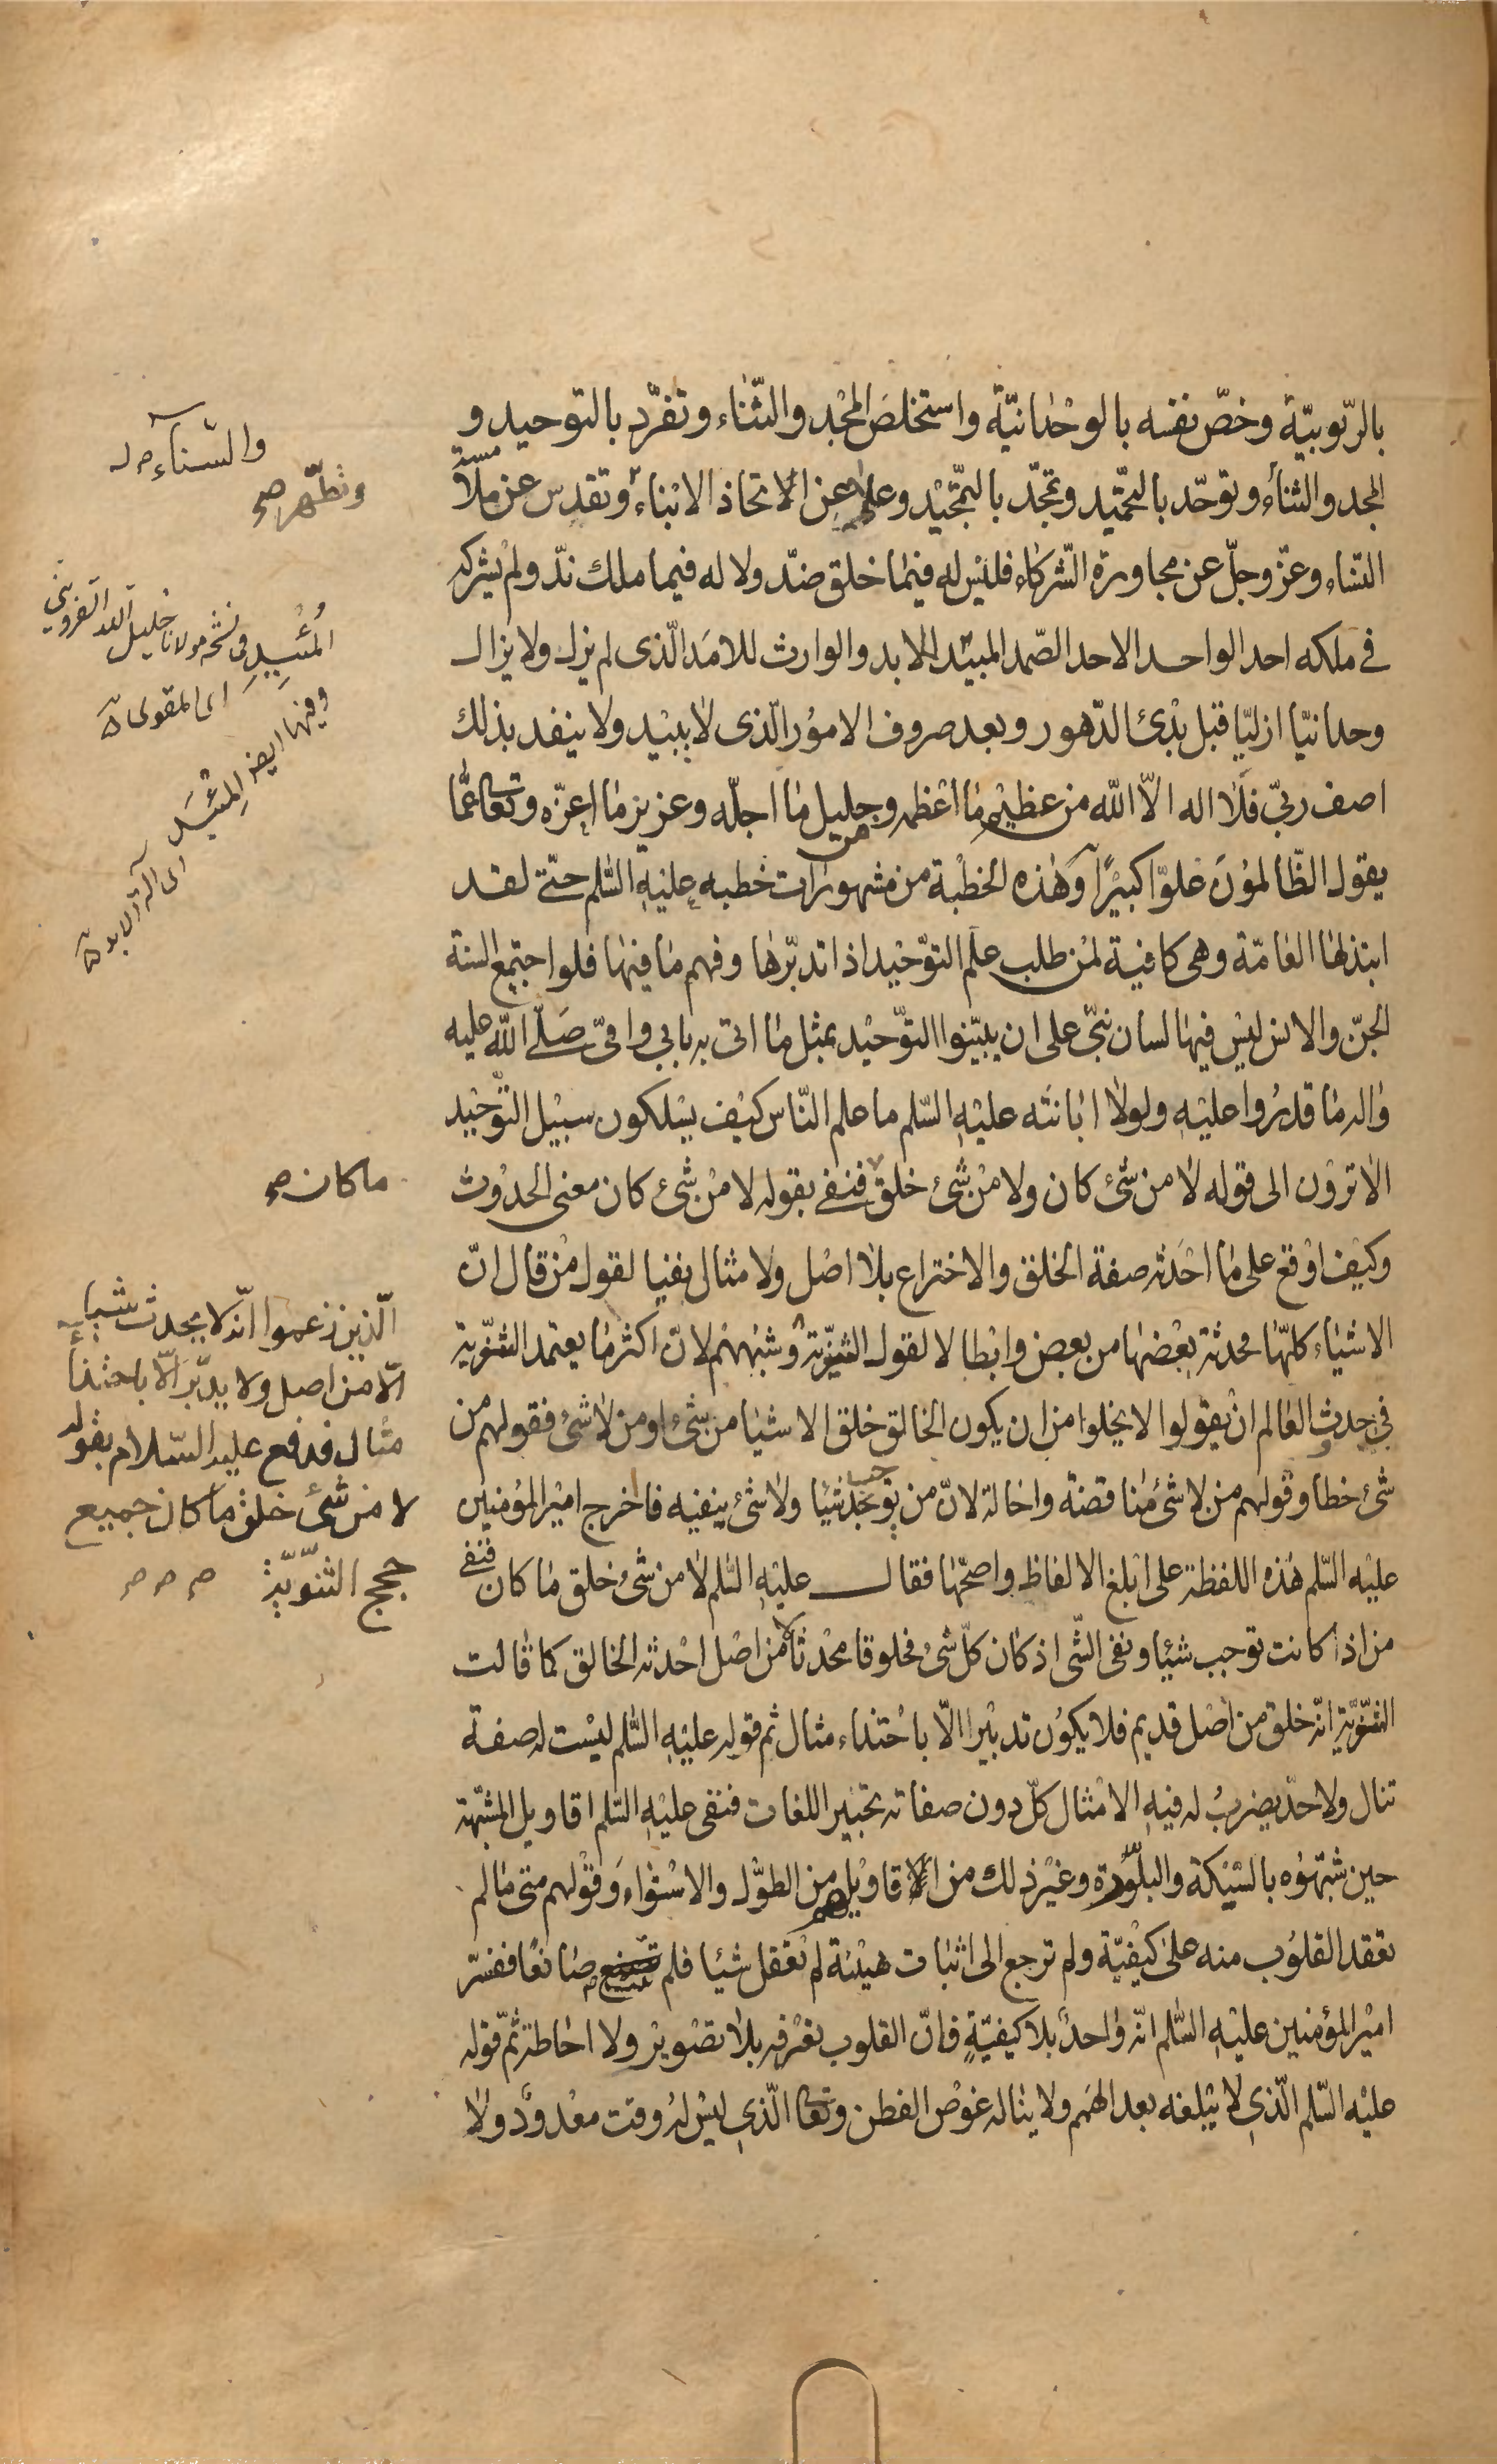 بالرّبوبيّة وخصّ نفسه بالوحدانيّة واستخلص المجد والثّناء وتفرّد بالتوحيد و
المجد والثناء وتوحّد بالتحميد وتمجّد بالتمجيد وعلا عن الاتخاذ الابناء وتقدس عن ملامسة
النساء وعزّ وجلّ عن مجاورة الشركاء فليس له فيما خلق ضدّ ولا له فيما ملك ندّ ولم يشركه
في ملكه احد الواحد الاحد الصّمد المبيد للابد والوارث للامد الّذى لم يزل ولا يزال
وحدانيّا ازليّا قبل بدئ الدّهور وبعد صروف الامور الّذى لا يبيد ولا ينفد بذلك
اصف ربّي فلا اله الّا الله من عظيم ما اعظمه ومن جليل ما اجلّه وعزيز ما اعزّه وتعالى عمّا
يقول الظّالمون علوّا كبيرًا وهذه الخطبة من مشهورات خطبه عليه السّلم حتّى لقد
ابتذلها العامّة وهى كافية لمن طلب علم التوحيد اذا تدبّرها وفهم ما فيها فلو اجتمع السنة
الجنّ والانس ليس فيها لسان نبيّ على ان يبيّنوا التوحيد بمثل ما اتى به بابي وامّي صلّى الله عليه
واله ما قدروا عليه ولولا ابانته عليه السّلم ما علم النّاس كيف يسلكون سبيل التّوحيد
الا ترون الى قوله لا من شئ كان ولا من شئ خلق فنفى بقوله لا من شئ كان معنى الحدوث
وكيف اوقع على ما احدثه صفة الخلق والاختراع بلا اصل ولا مثال نفيا لقول من قال انّ
الاشياء كلّها محدثة بعضها من بعض وابطالا لقول الثنويّة وشبههم لانّ اكثر ما يعتمد الثنويّة
في حدث العالم ان يقولوا لا يخلوا من ان يكون الخالق خلق الاشيا من شئ او من لا شئ فقولهم من
شئ خطأ وقولهم من لا شئ مناقضة واحالة لانّ من يوجب شيئا ولا شئ ينفيه فاخرج امير المؤمنين
عليه السّلم هذه اللفظة على ابلغ الالفاظ واصحّها فقال عليه السّلم لا من شئ خلق ما كان فنفى
من اذا كانت توجب شيئا ونفى الشّى اذ كان كلّ شئ مخلوقا محدثا لا من اصل احدثه الخالق كما قالت
الثنويّة انّه خلق من اصل قديم فلا يكون تدبيرا الّا باحتذاء مثال ثم قوله عليه السّلم ليست له صفة
تنال ولا حدّ يضرب له فيه الامثال كلّ دون صفاته تحبير اللغات فنفى عليه السّلم اقاويل المشبّهة
حين شبّهوه بالسّبيكة والبلّورة وغير ذلك من اقاويلهم من الطول والاستواء وقولهم متى ما لم
تعقد القلوب منه على كيفيّة ولم ترجع الى اثبات هيئة لم تعقل شيئا فلم تثبت صانعًا ففسّر
امير المؤمنين عليه السّلم انّه واحد بلا كيفيّةٍ فانّ القلوب تعرفه بلا تصوير ولا احاطة ثمّ قوله
عليه السّلم الّذى لا يبلغه بعد الهمم ولا يناله غوص الفطن وتعالى الّذى ليس له وقت معدود ولا
والسّناء
وتطّهر صح
المُئَبِّد فى نسخة مولانا خليل الله القزوينى
اى المقوى
وفيها ايضا المئبد
اى آلة الابد
ما كان صح
الّذين زعموا انّه لا يحدث شيئا
الّا من اصل ولا يدبّر الّا باحتذا
مثال فدفع عليه السّلام بقوله
لا من شئ خلق ما كان جميع
حجج الثّنويّة